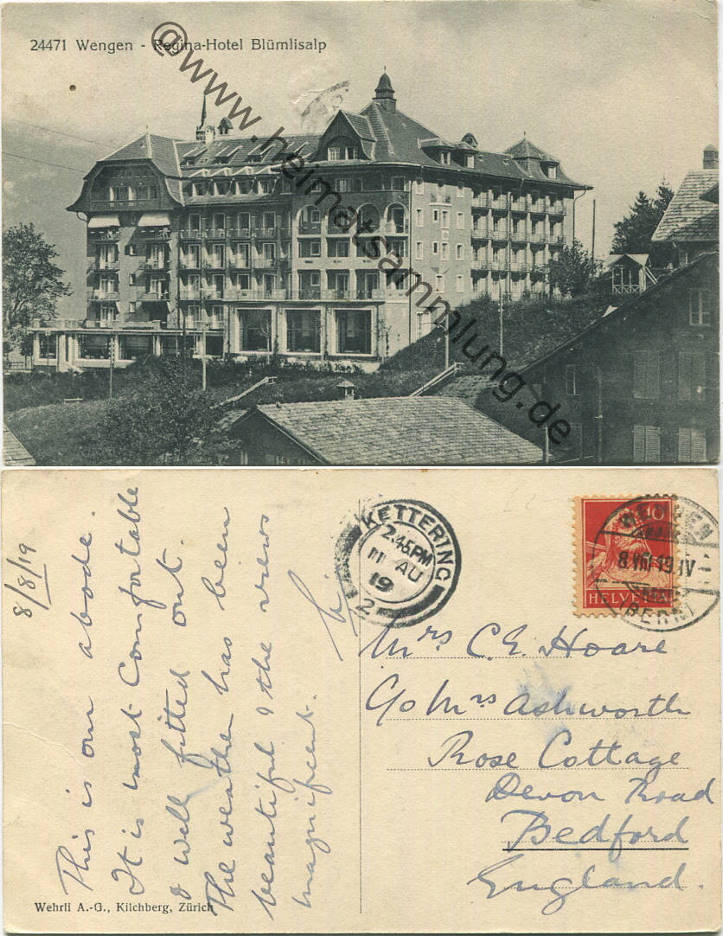 24471 Wengen - Regina-Hotel Blümlisalp
@www.heimatsammlung.de
8/8/19
This is our abode.
It is most Comfortable
& well fitted out.
The weather has been
beautiful & the views
magnificent.
KETTERING
2.45PM
11 AU
19
2
WENGEN
8.VIII.19.IV
(BERN)
10
HELVETIA
Mrs C.E. Hoare
c/o Mrs Ashworth
Rose Cottage
Devon Road
Bedford
England.
Wehrli A.-G., Kilchberg, Zürich